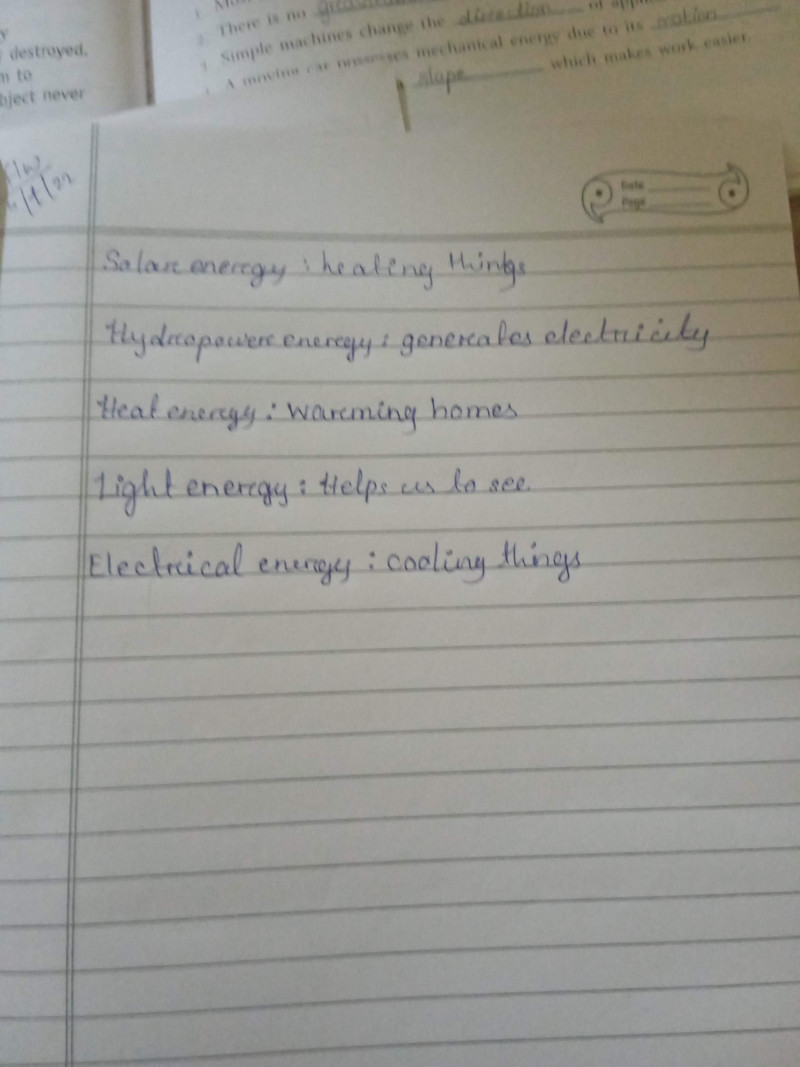 y
destroyed.
m to
bject never
2. There is no
3. Simple machines change the direction of
4. A moving car possesses mechanical energy due to its motion
slope which makes work easier.
Date
Page
Solar energy : heating things
Hydropower energy : generates electricity
Heat energy : warming homes
Light energy : Helps us to see
Electrical energy : cooling things